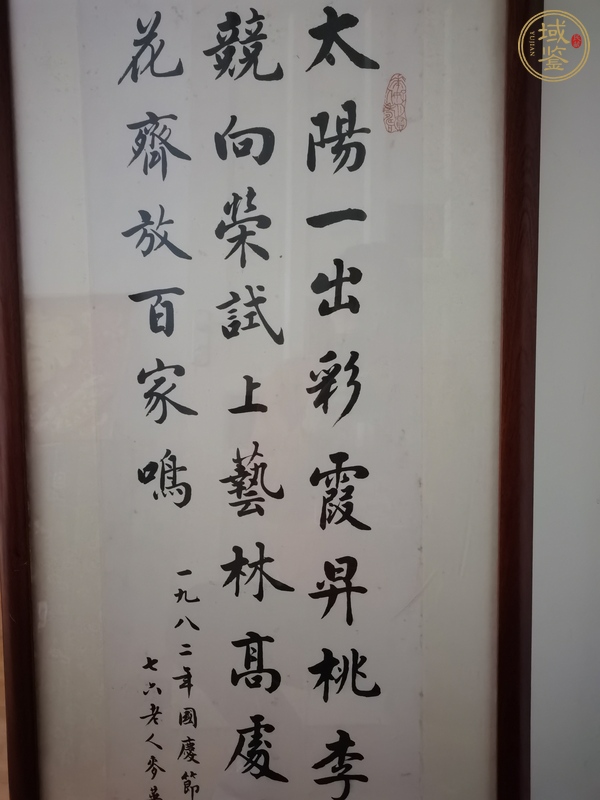 太陽一出彩霞昇桃李
競向榮試上藝林高處
花齊放百家鳴
一九八二年國慶節
七六老人麥
域鉴
YUJIAN